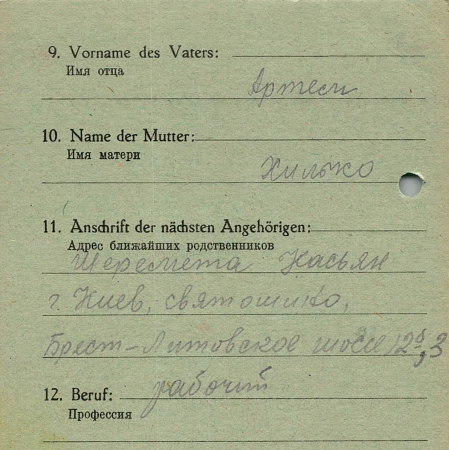 9. Vorname des Vaters:
Имя отца
Артем
10. Name der Mutter:
Имя матери
Хилько
11. Anschrift der nächsten Angehörigen:
Адрес ближайших родственников
Шеремета Касьян
г. Киев, святошино,
Брест-Литовское шоссе 125,3
12. Beruf: рабочий
Профессия